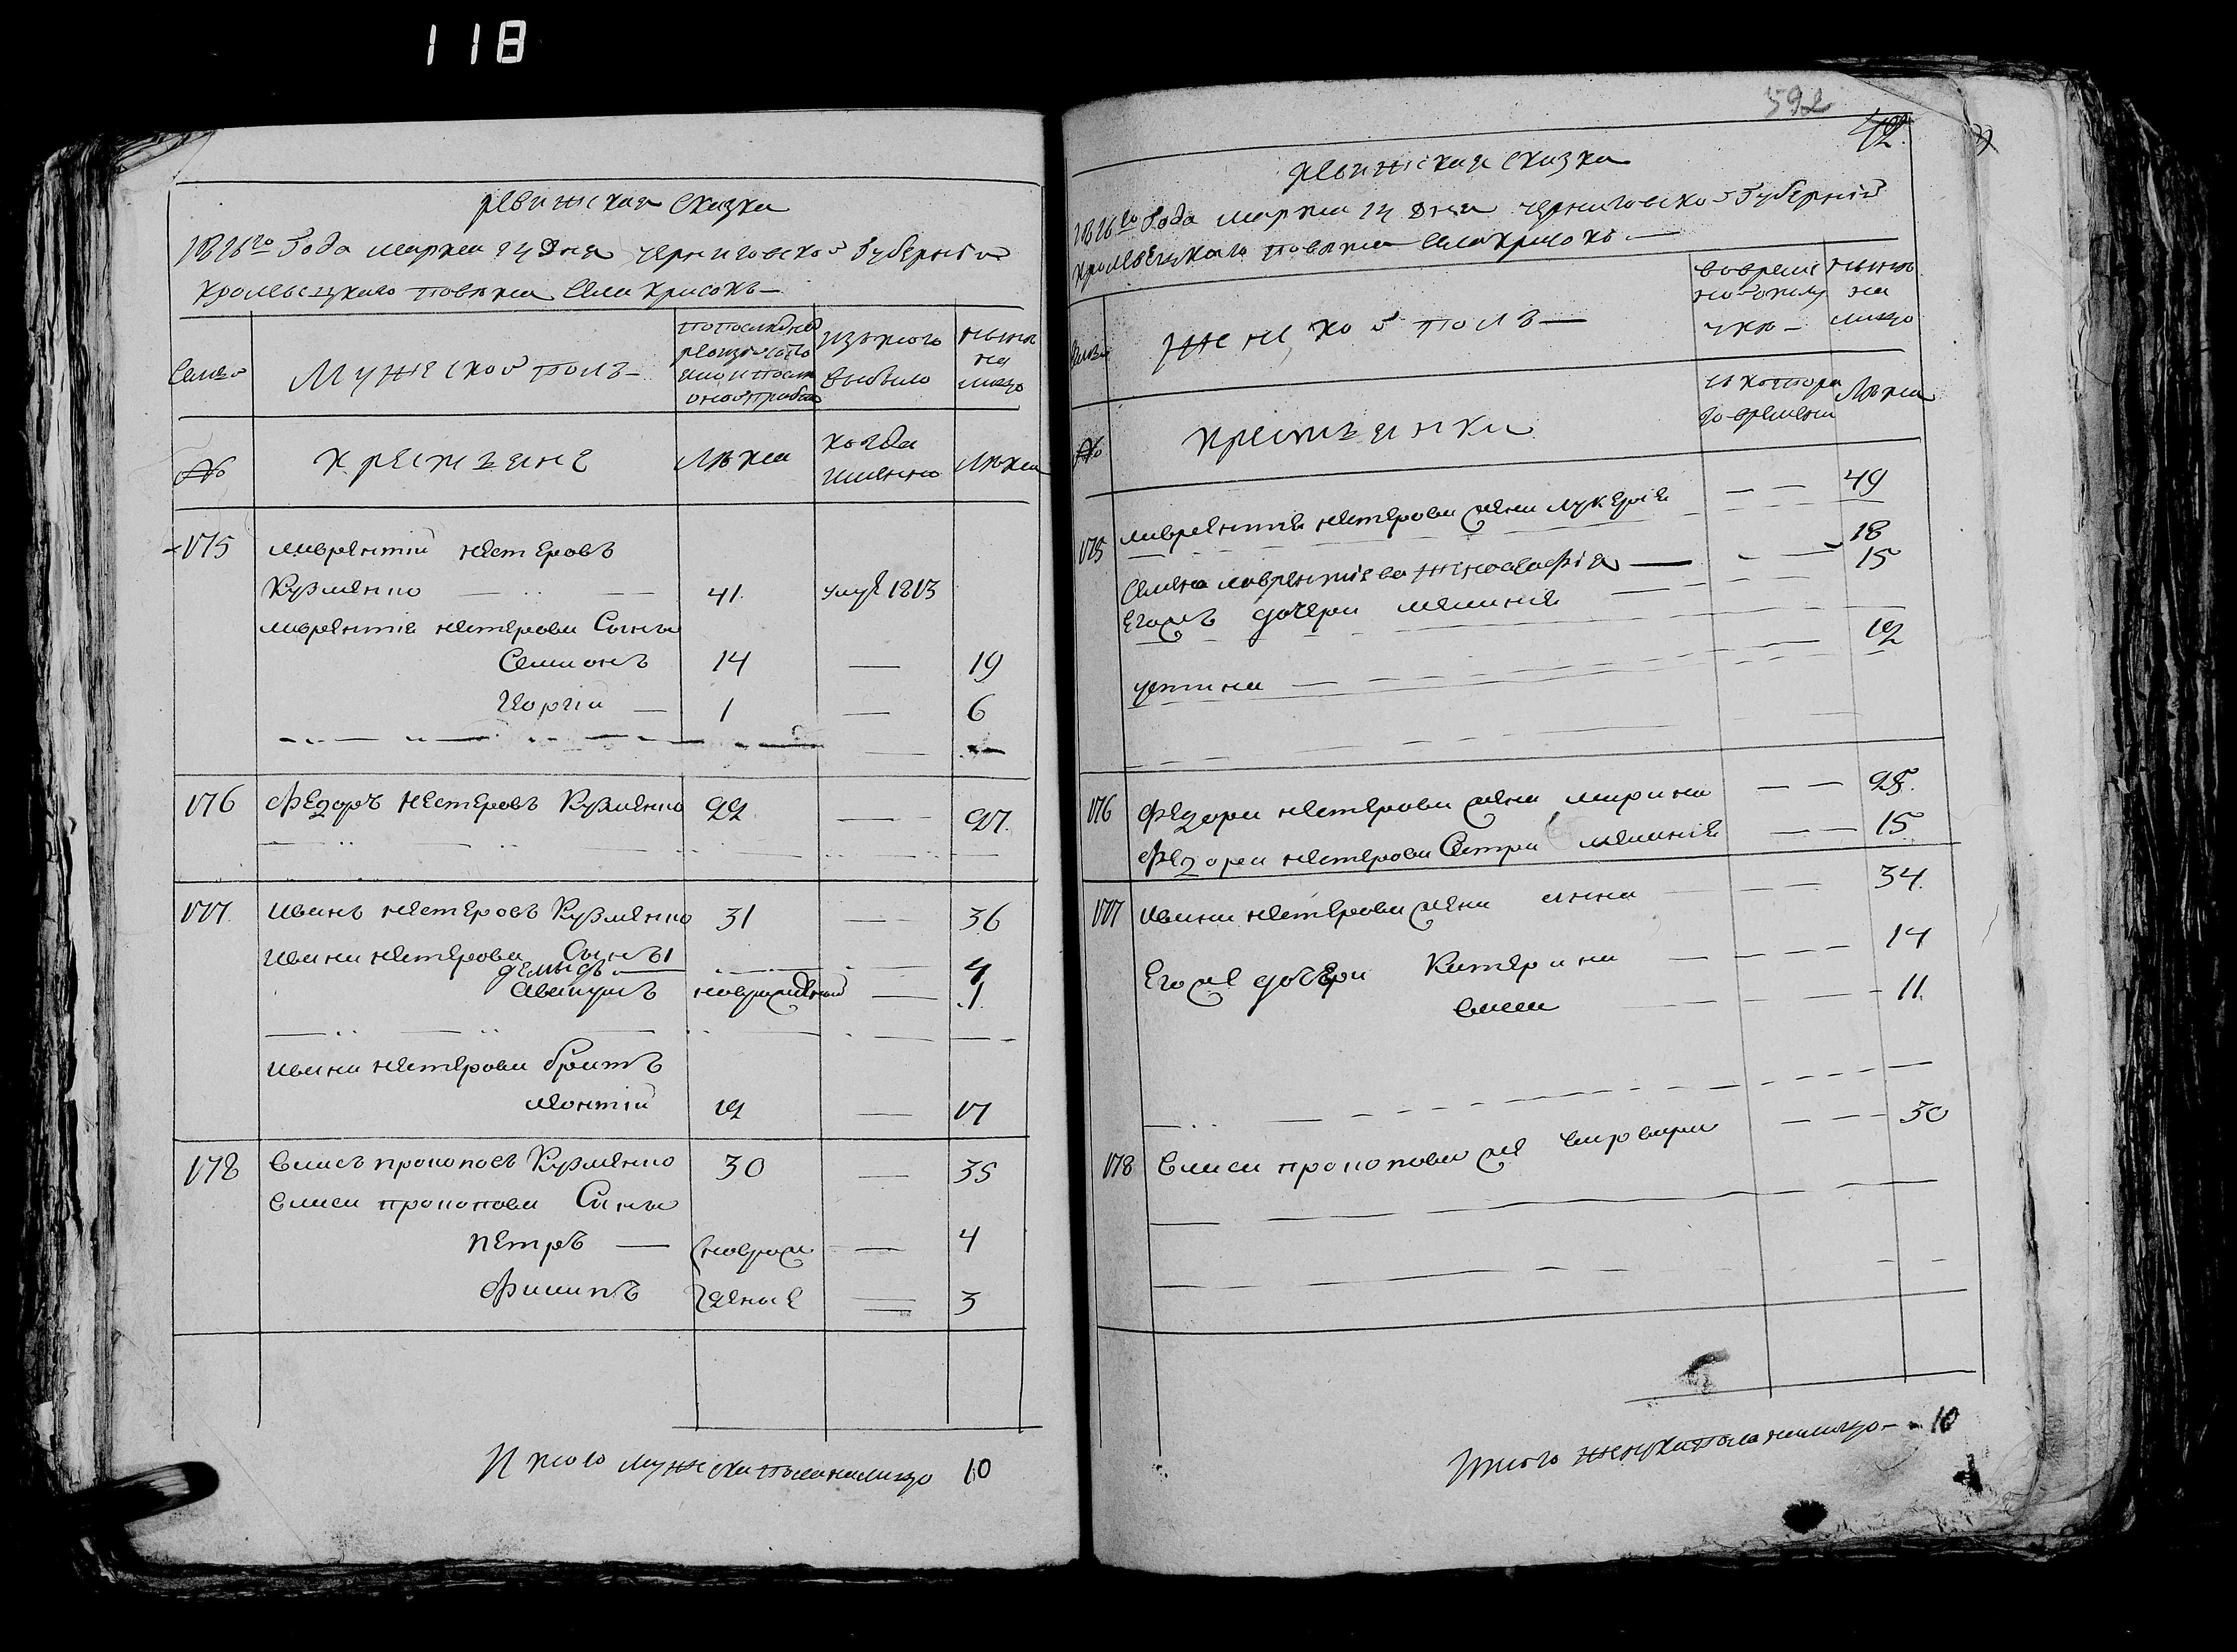 118
ревижская сказка
1816го Года марта 24 Дня черниговской Губернии
кролевецкаго повѣта Села красокъ
Семьи
Мужеской полъ
по последней ревизіи состояло и после оной прибыло
изътого выбыло
нынѣ на лицо
№
крестьяне
Лѣта
когда имянно
Лѣта
175 лаврентій нестеровъ
Кузменко 41. умре 1813
лаврентія нестерова Сыны
Семионъ 14 19
Георгій 1 6
176 Федоръ Нестеровъ Кузменко 22 27.
177. иванъ нестеровъ Кузменко 31 36
ивана нестерова Сыны
демидъ 4
Авакумъ новорожденный 1.
ивана нестерова братъ
леонтій 12 17
178 власъ прокоповъ Кузменко 30 35
власа прокопова Сыны
петръ новорож 4
Филипъ денные 3
Итого мужеска пола налицо 10
592
42
ревижская сказка
1816го Года марта 24 Дня черниговской Губерніи
кролевецкаго повѣта Села красокъ
Семьи
женской полъ
вовременной отлучкѣ
нынѣ на лицо
№
крестьянки
съ котораго времени
Лѣта
175 лаврентія нестерова жена лукерія 49
Семена лаврентіева жена 18
Егожъ дочери меланія 15
устина 12
176 Федора нестерова жена марина 25.
Федора нестерова Сестра меланія 15
177 ивана нестерова жена анна 34.
Егоже дочери Катерина 14
11.
178 власа прокопова же варвара 30
Итого женска пола налицо 10